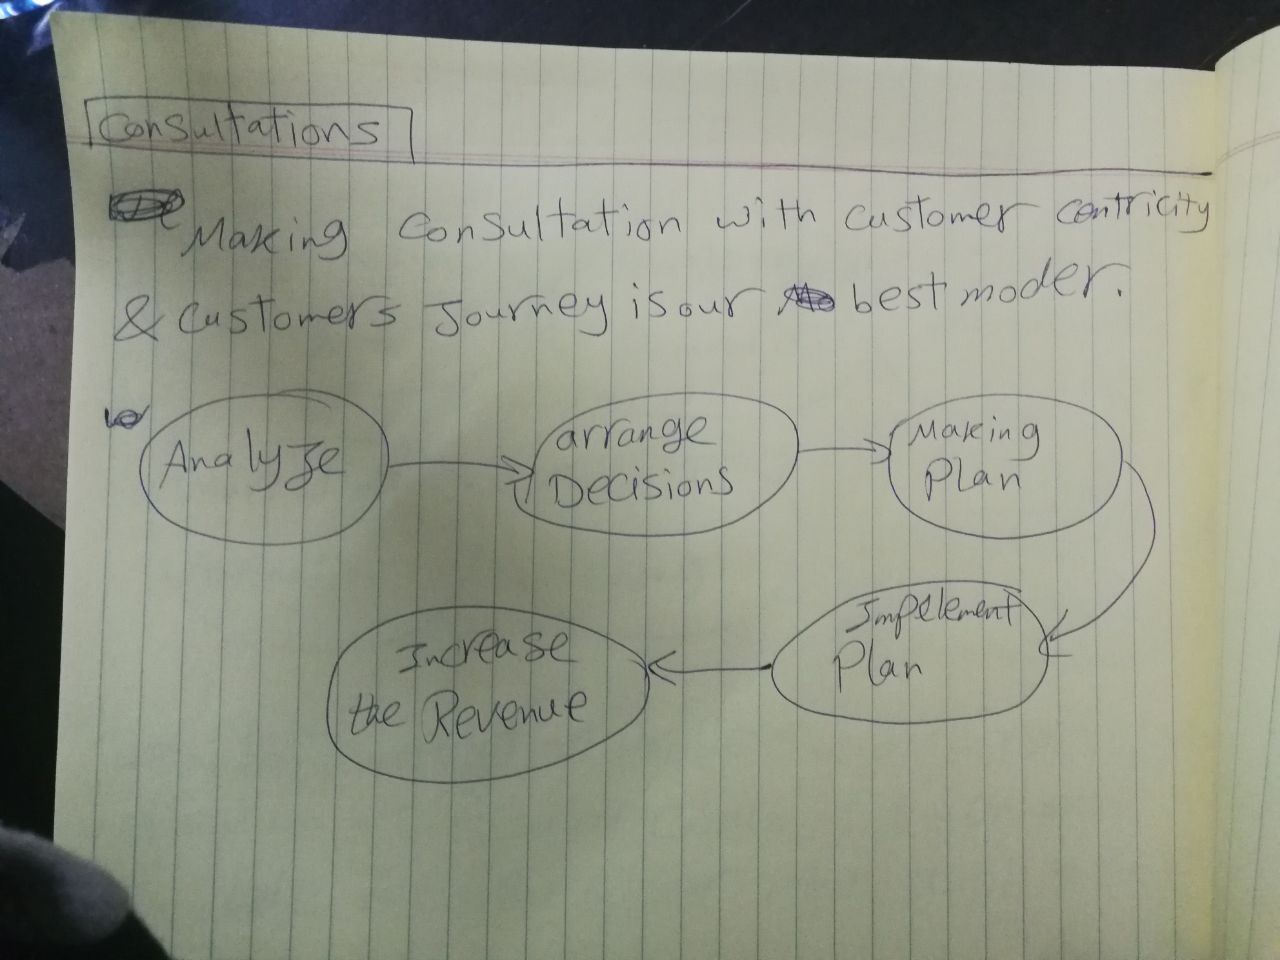 Consultations
Making Consultation with customer centricity
& customers Journey is our best moder.
Analyze
arrange
Decisions
Making
Plan
Impelement
Plan
Increase
the Revenue